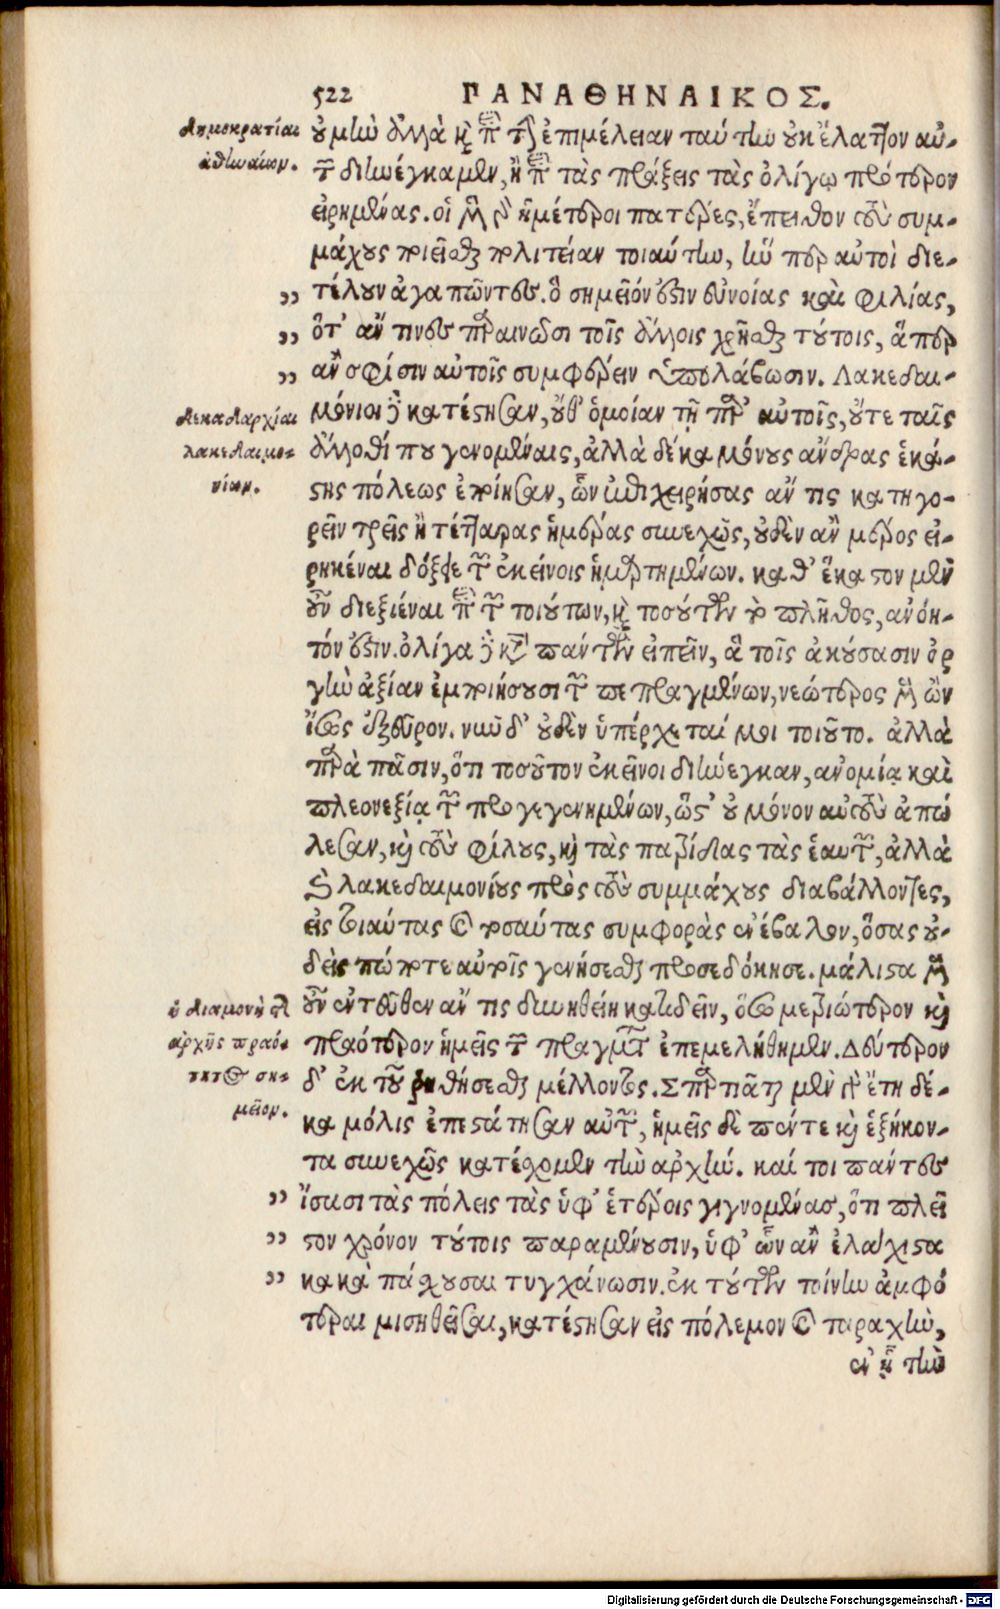 522 ΠΑΝΑΘΗΝΑΙΚΟΣ.
δημοκρατίαι
ἀθηναίων.
οὐ μὴν ἀλλὰ καὶ περὶ τὴν ἐπιμέλειαν ταύτην οὐκ ἔλαττον αὐ-
τῶν διηνέγκαμεν, ἢ περὶ τὰς πράξεις τὰς ὀλίγῳ πρότερον
εἰρημένας. οἱ μὲν γὰρ ἡμέτεροι πατέρες, ἔπειθον τοὺς συμ-
μάχους ποιεῖσθαι πολιτείαν τοιαύτην, ἥν περ αὐτοὶ διε-
„ τέλουν ἀγαπῶντες. ὃ σημεῖόν ἐστιν εὐνοίας καὶ φιλίας,
„ ὅτ' ἄν τινες παραινῶσι τοῖς ἄλλοις χρῆσθαι τούτοις, ἅπερ
„ ἂν σφίσιν αὐτοῖς συμφέρειν ὑπολάβωσιν. Λακεδαι-
δεκαδαρχίαι
λακεδαιμο-
νίων.
μόνιοι δὲ κατέστησαν, οὔθ' ὁμοίαν τῇ παρ' αὐτοῖς, οὔτε ταῖς
ἄλλοθί που γενομέναις, ἀλλὰ δέκα μόνους ἄνδρας ἑκά-
στης πόλεως ἐποίησαν, ὧν ἐπιχειρήσας ἄν τις κατηγο-
ρεῖν τρεῖς ἢ τέτταρας ἡμέρας συνεχῶς, οὐδὲν ἂν μέρος εἰ-
ρηκέναι δόξειε τῶν ἐκείνοις ἡμαρτημένων. καθ' ἕκαστον μὲν
οὖν διεξιέναι περὶ τῶν τοιούτων, καὶ τοσούτων τὸ πλῆθος, ἀνόη-
τόν ἐστιν. ὀλίγα δὲ κατὰ πάντων εἰπεῖν, ἃ τοῖς ἀκούσασιν ὀρ
γὴν ἀξίαν ἐμποιήσουσι τῶν πεπραγμένων, νεώτερος μὲν ὢν
ἴσως ἐξεῦρον. νῦν δ' οὐδὲν ὑπέρχεταί μοι τοιοῦτο. ἀλλὰ
παρὰ πᾶσιν, ὅτι τοσοῦτον ἐκεῖνοι διήνεγκαν, ἀνομίᾳ καὶ
πλεονεξίᾳ τῶν προγεγενημένων, ὥστ' οὐ μόνον αὑτοὺς ἀπώ
λεσαν, καὶ τοὺς φίλους, καὶ τὰς πατρίδας τὰς ἑαυτῶν, ἀλλὰ
καὶ λακεδαιμονίους πρὸς τοὺς συμμάχους διαβάλλοντες,
εἰς τοιαύτας καὶ τοσαύτας συμφορὰς ἐνέβαλον, ὅσας οὐ-
δεὶς πώποτε αὐτοῖς γενήσεσθαι προσεδόκησε. μάλιστα μὲν
ἡ διαμονὴ τῆς
ἀρχῆς πραό-
τητος ση-
μεῖον.
οὖν ἐντεῦθεν ἄν τις δυνηθείη κατιδεῖν, ὅσῳ μετριώτερον καὶ
πραότερον ἡμεῖς τῶν πραγμάτων ἐπεμελήθημεν. Δεύτερον
δ' ἐκ τοῦ ῥηθήσεσθαι μέλλοντος. Σπαρτιᾶται μὲν γὰρ ἔτη δέ-
κα μόλις ἐπεστάτησαν αὐτῶν, ἡμεῖς δὲ πέντε καὶ ἑξήκον-
τα συνεχῶς κατέσχομεν τὴν ἀρχήν. καί τοι πάντες
„ ἴσασι τὰς πόλεις τὰς ὑφ' ἑτέροις γιγνομένας, ὅτι πλεῖ
„ στον χρόνον τούτοις παραμένουσιν, ὑφ' ὧν ἂν ἐλάχιστα
„ κακὰ πάσχουσαι τυγχάνωσιν. ἐκ τούτων τοίνυν ἀμφό
τεραι μισηθεῖσαι, κατέστησαν εἰς πόλεμον καὶ ταραχὴν,
ἐν ᾗ τὴν
Digitalisierung gefördert durch die Deutsche Forschungsgemeinschaft - DFG